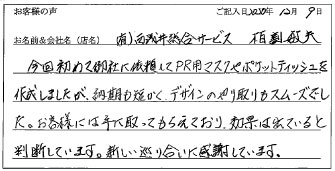 お客様の声 ご記入日2020年12月9日
お名前&会社名(店名) (有)西浅井総合サービス 相馬敏夫
今回初めて御社に依頼してPR用マスクやポケットティッシュを
作成しましたが、納期も短かく、デザインのやり取りもスムーズでし
た。お客様には手に取ってもらえており、効果は出ていると
判断しています。新しい巡り合いに感謝しています。